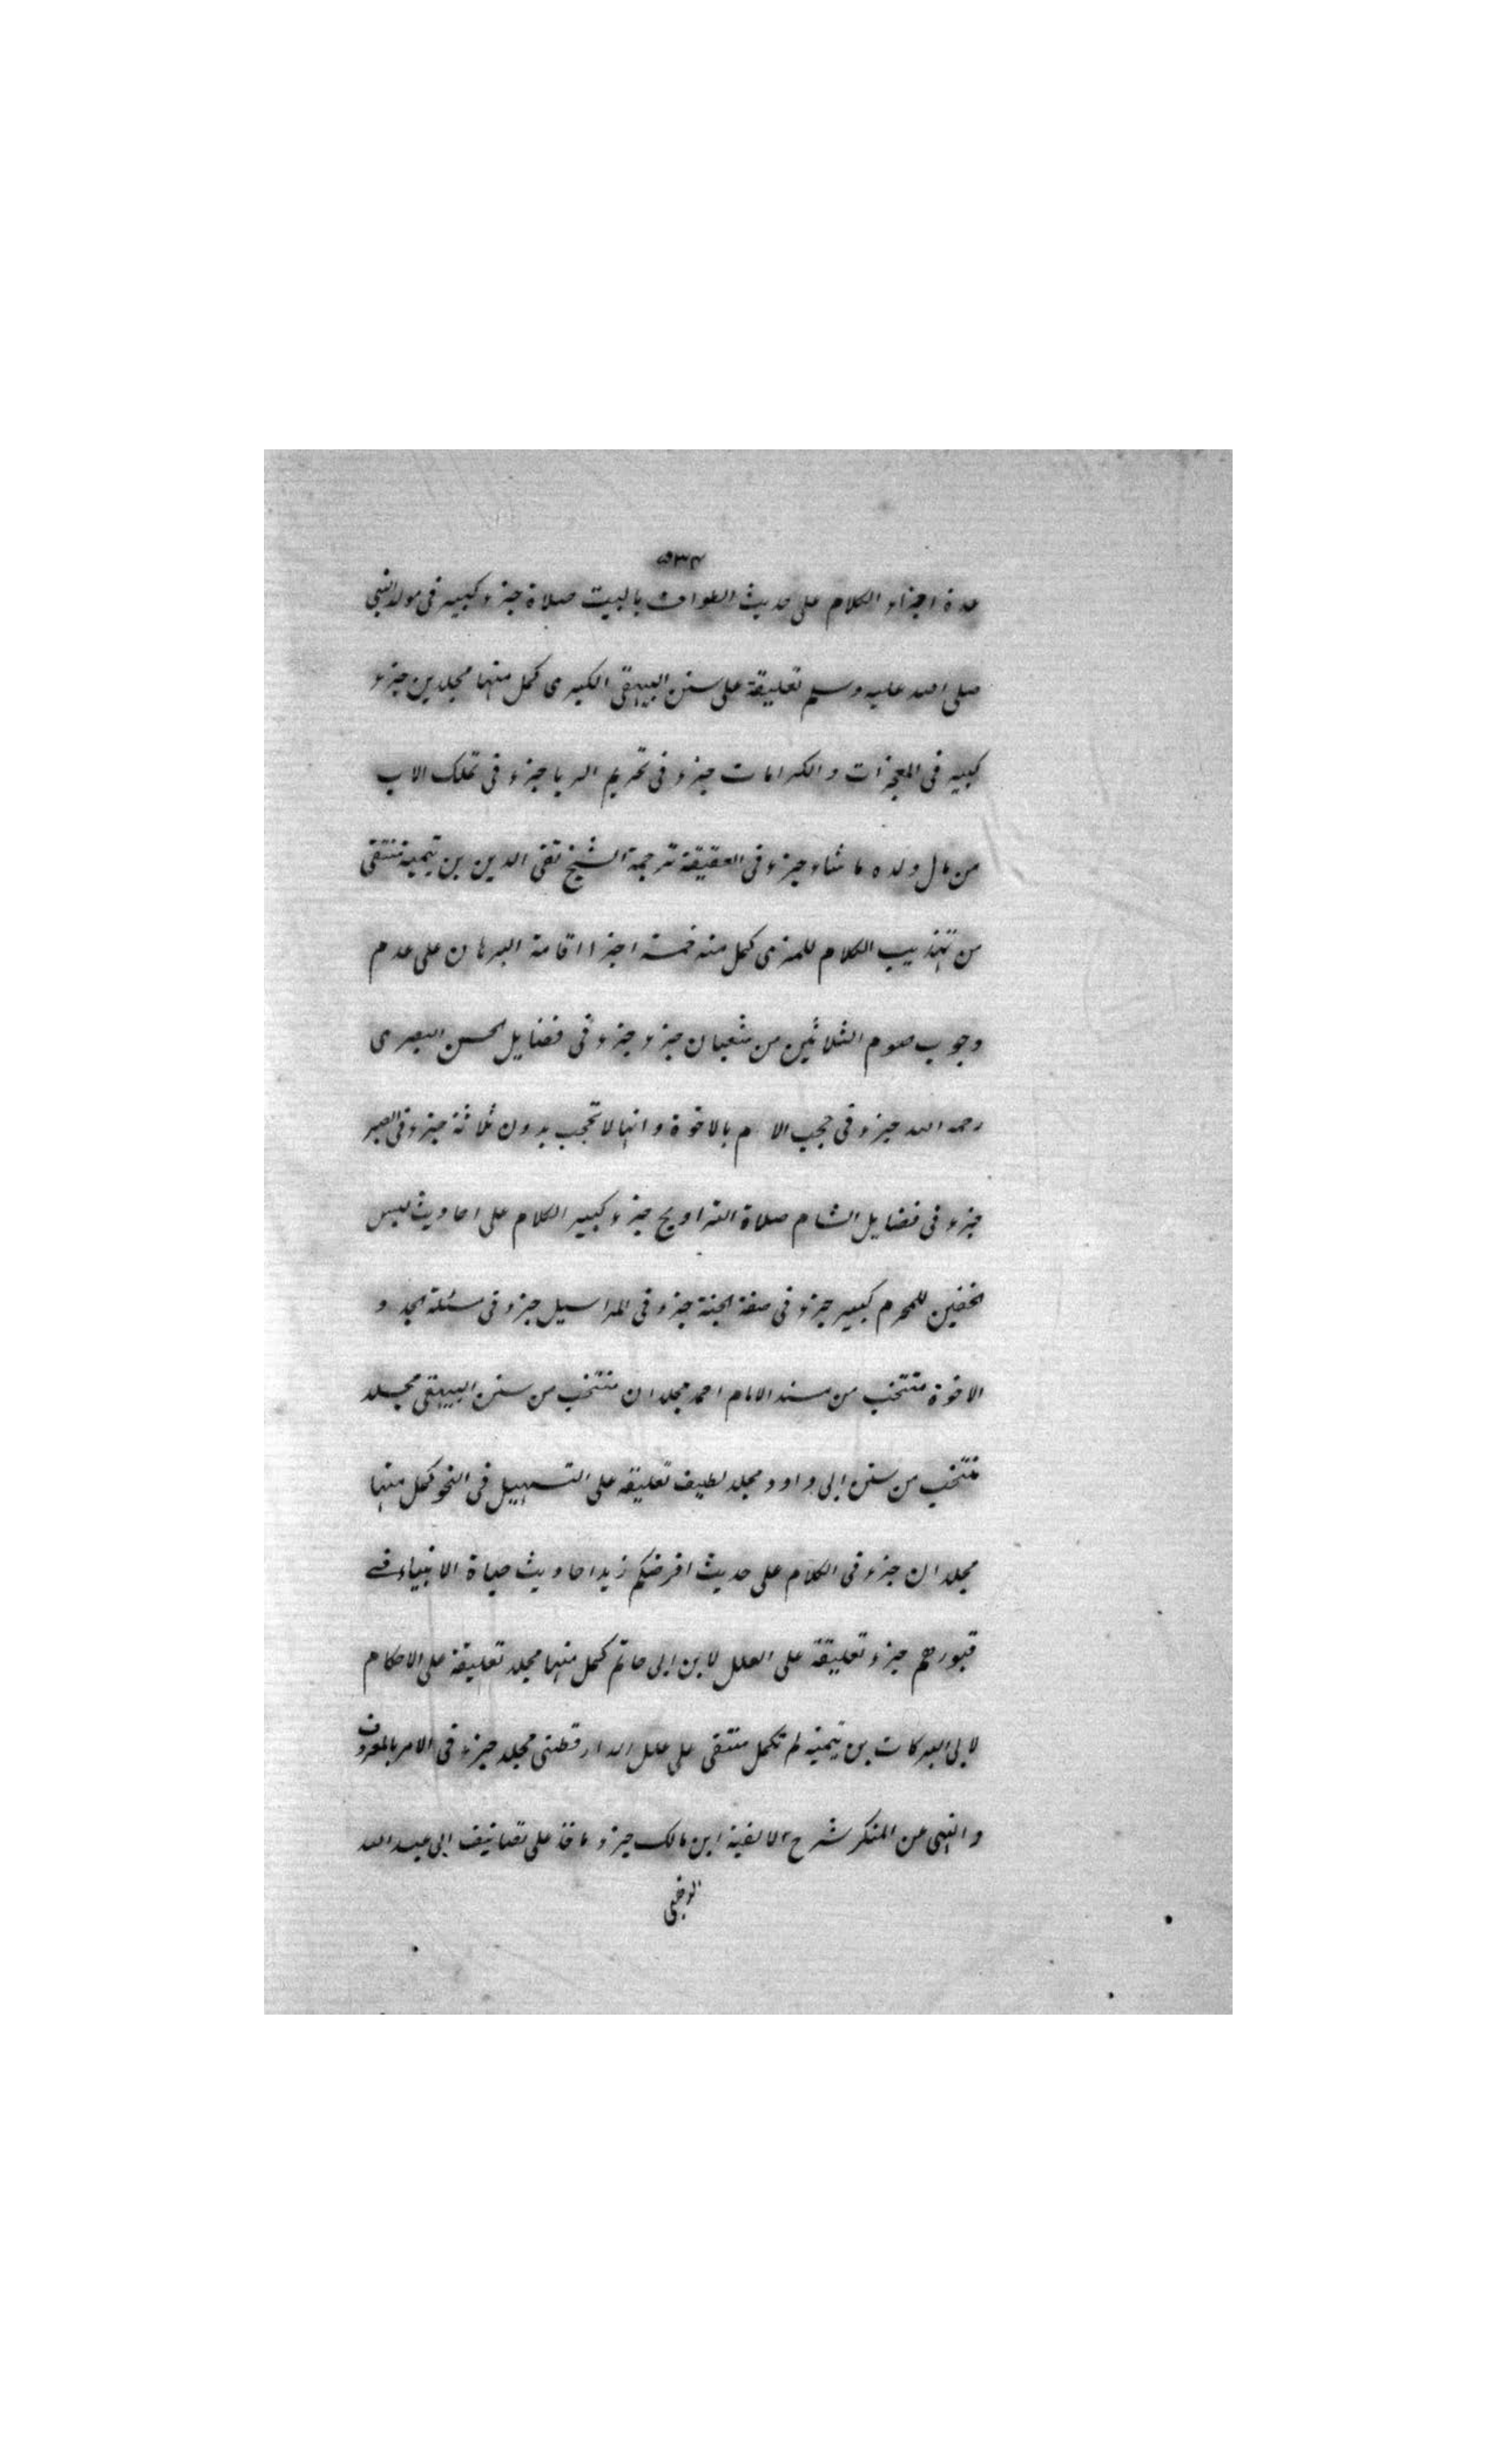 ۵۳۴
عدة اجزاء الكلام على حديث الطواف بالبيت صلاة جزء كبير فى مولد النبى
صلى الله عليه وسلم تعليقة على سنن البيهقى الكبرى كمل منها مجلدين جزء
كبير فى المعجزات والكرامات جزء فى تحريم الربا جزء فى تملك الاب
من مال ولده ما شاء جزء فى العقيقة ترجمة الشيخ تقى الدين بن تيمية منتقى
من تهذيب الكلام للمزى كمل منه خمسة اجزا اقامة البرهان على عدم
وجوب صوم الثلاثين من شعبان جزء جزء فى فضايل الحسن البصرى
رحمه الله جزء فى حجب الام بالاخوة وانها لا تحجب بدون ثلاثة جزء فى الصبر
جزء فى فضايل الشام صلاة التراويح جزء كبير الكلام على احاديث لبس
الخفين للمحرم كبير جزء فى صفة الجنة جزء فى المراسيل جزء فى مسئلة الجد و
الاخوة منتخب من مسند الامام احمد مجلدان منتخب من سنن البيهقى مجلد
منتخب من سنن ابى داود مجلد لطيف تعليقه على التسهيل فى النحو كمل منها
مجلدان جزء فى الكلام على حديث افرضكم زيد احاديث حياة الانبياء فى
قبورهم جزء تعليقة على العلل لابن ابى حاتم كمل منها مجلد تعليقة على الاحكام
لابى البركات بن تيمية لم تكمل منتقى على علل الدارقطنى مجلد جزء فى الامر بالمعروف
والنهى عن المنكر شرح الالفية ابن مالك جزء ماخذ على تصانيف ابى عبد الله